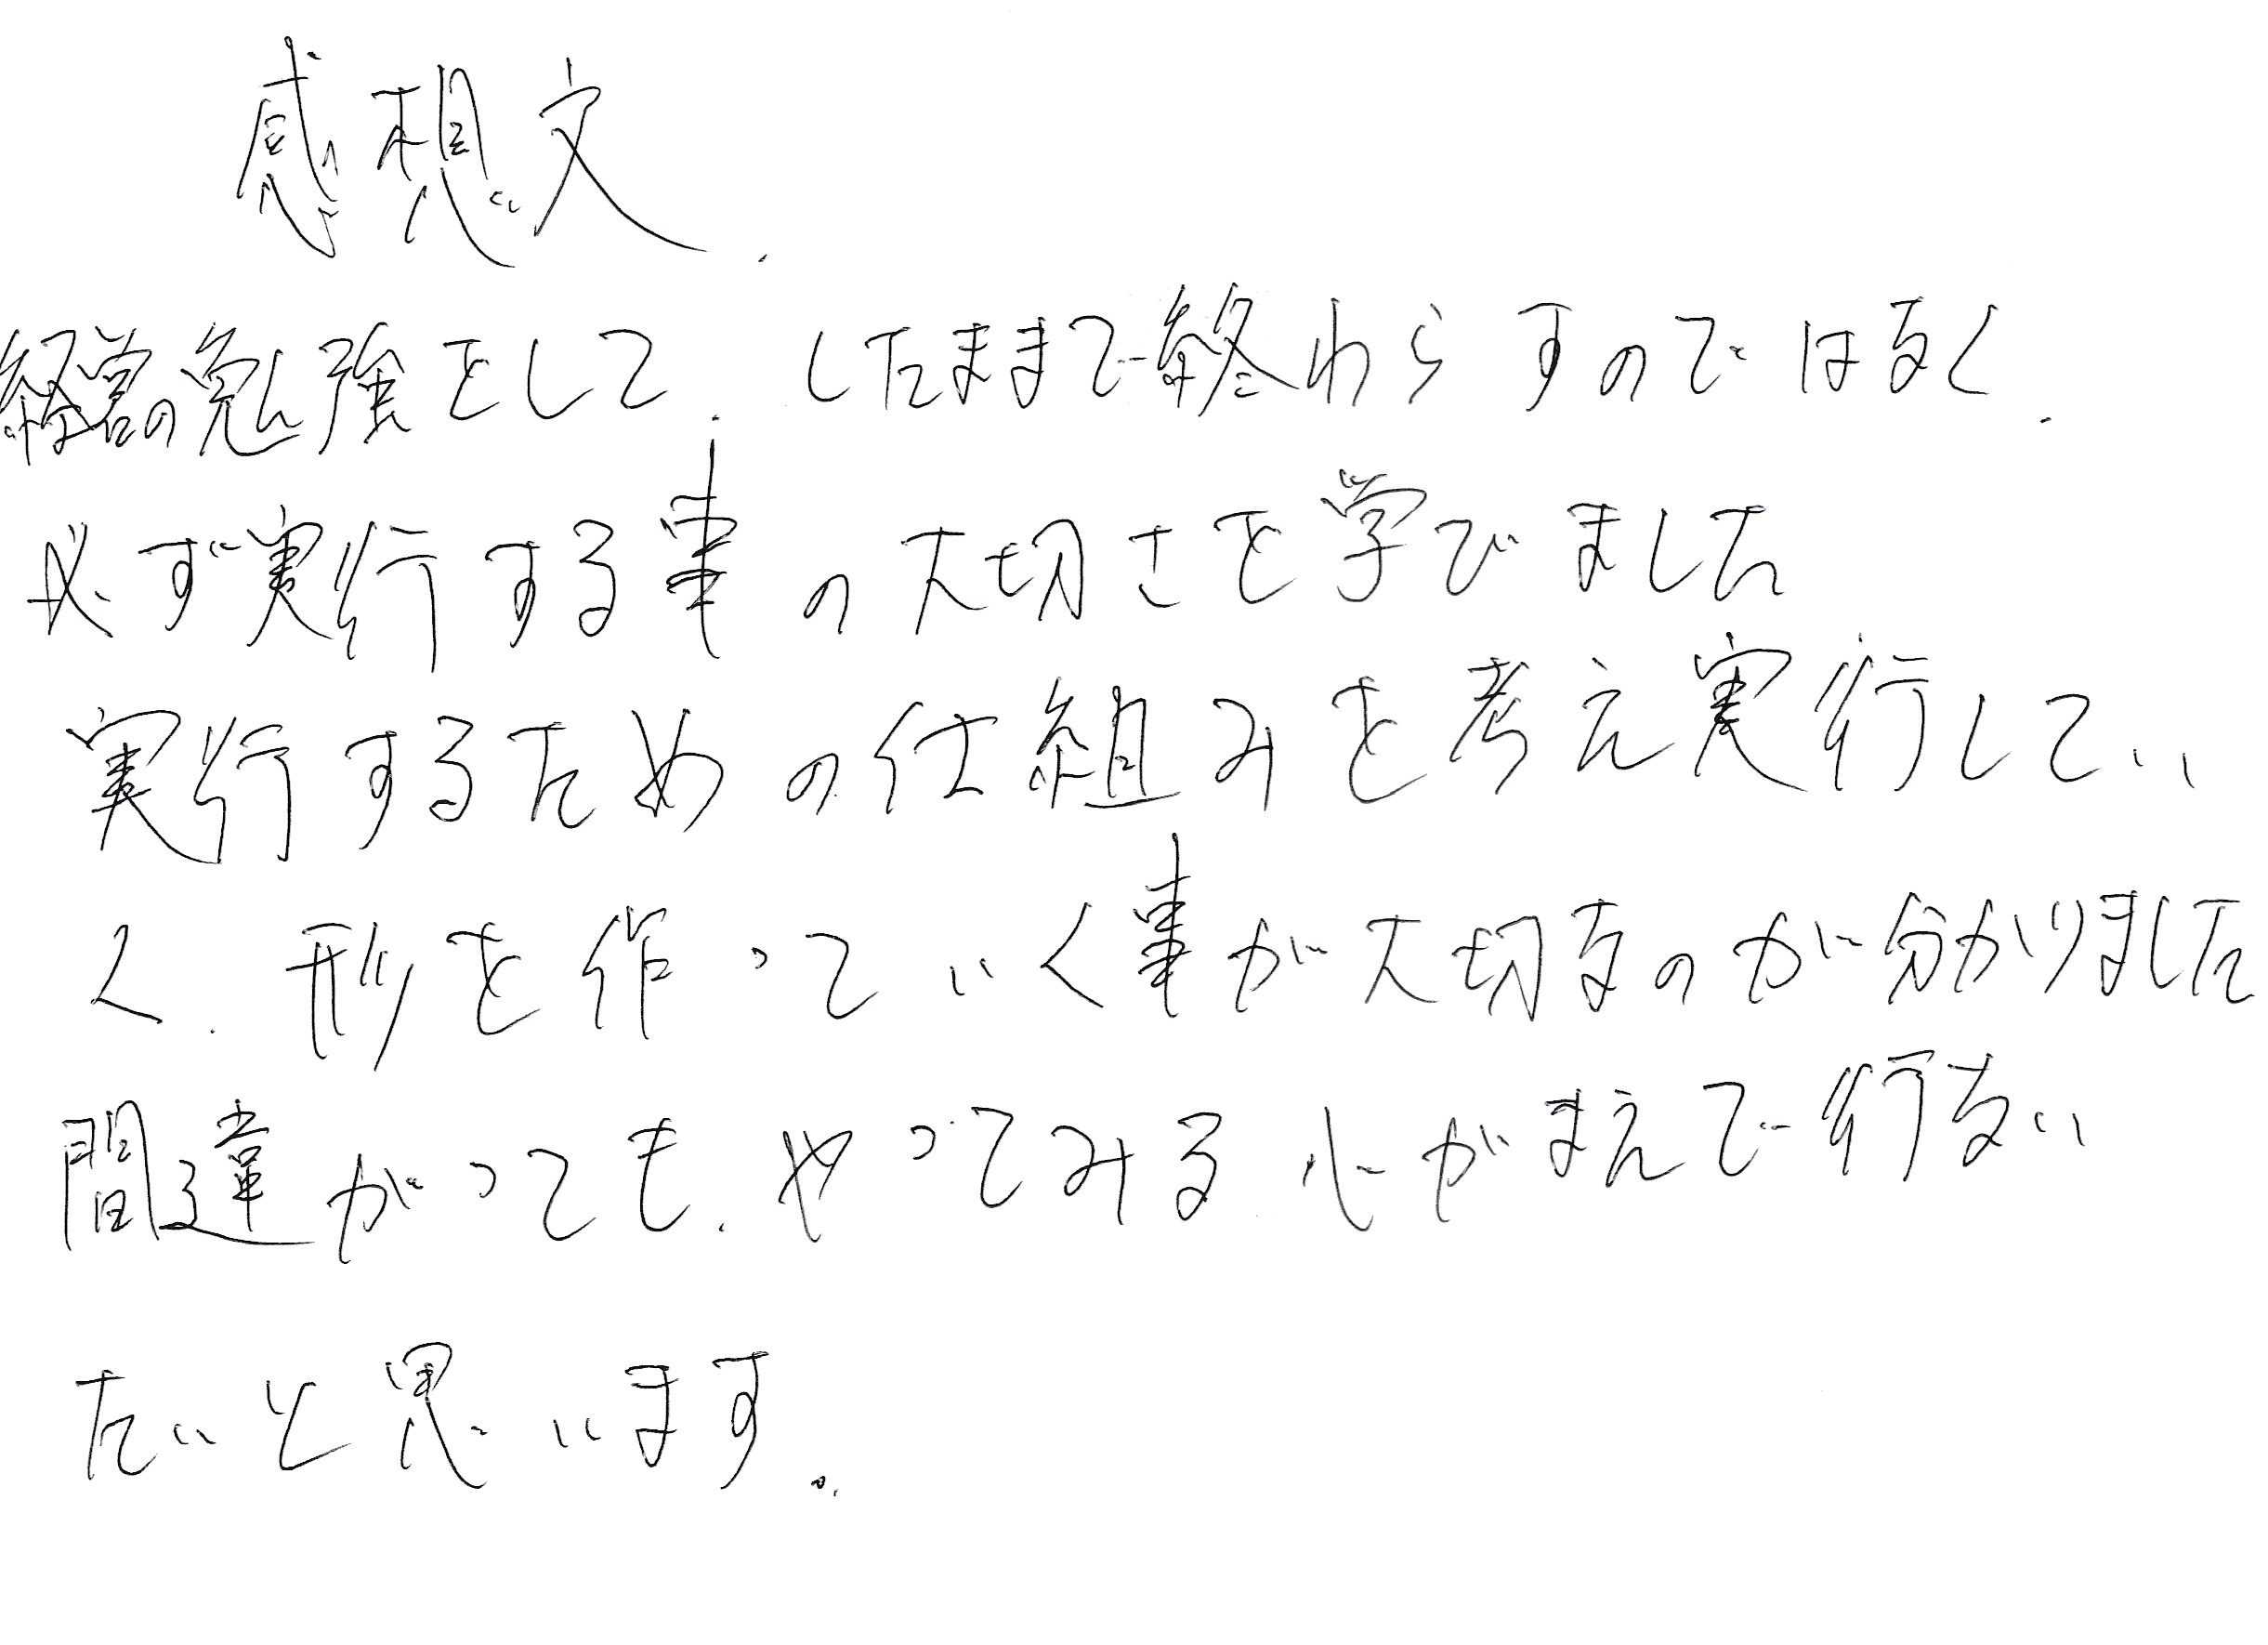 感想文.
経営の勉強をして、したままで終わらすのではなく、
必ず実行する事の大切さを学びました
実行するための仕組みを考え実行してい
く、形を作っていく事が大切なのが分かりました
間違がっても、やってみる心がまえで行ない
たいと思います。